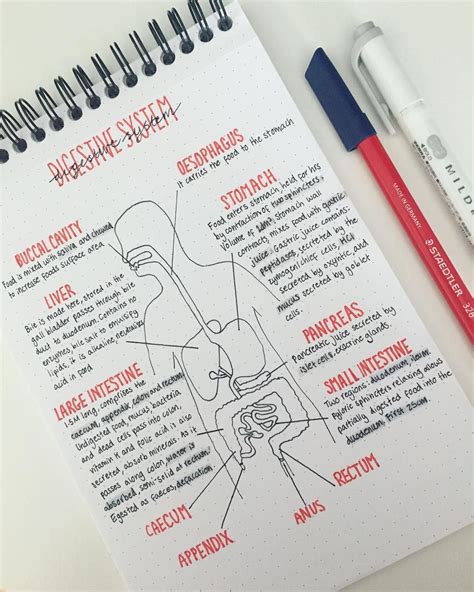 DIGESTIVE SYSTEM
digestive system
BUCCAL CAVITY
Food is mixed with saliva and chewed
to increase foods surface area
LIVER
Bile is made here, stored in the
gall bladder passes through bile
duct to duodenum. Contains no
enzymes, bile salt to emulsify
lipids, it is alkaline neutralize
acid in food
LARGE INTESTINE
1.5M long, comprises the
caecum, appendix, colon and rectum.
Undigested food, mucus, bacteria
and dead cells pass into colon.
vitamin K and folic acid is also
secreted, absorb minerals. As it
passes along colon, water is
absorbed, semi-solid at rectum
Egested as faeces, defacation.
OESOPHAGUS
It carries the food to the stomach
STOMACH
Food enters stomach, held for hrs
by contraction of two sphincters,
volume of stomach wall
contracts, mixes food with gastric
juice. Gastric juice contains:
peptidases, secreted by the
zymogen/chief cells, HCl
secreted by oxyntic, and
mucus secreted by goblet
cells.
PANCREAS
Pancreatic juice secreted by
islet cells, exocrine glands.
SMALL INTESTINE
Two regions: duodenum, ileum.
Pyloric sphincters relaxing allows
partially digested food into the
duodenum, first 25cm.
CAECUM
APPENDIX
ANUS
RECTUM
MADE IN GERMANY
STAEDTLER
MILD